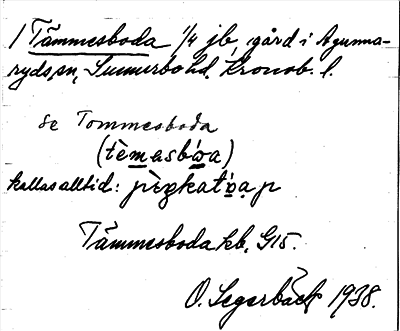 1 Tämmesboda 1/4 jb, gård i Agunna-
ryds sn, Sunnerbo hd, Kronob. l.
se Tommesboda
(tèmasbóa)
kallas alltid:
Tämmesboda kb, G15.
O. Segerbäck 1938.